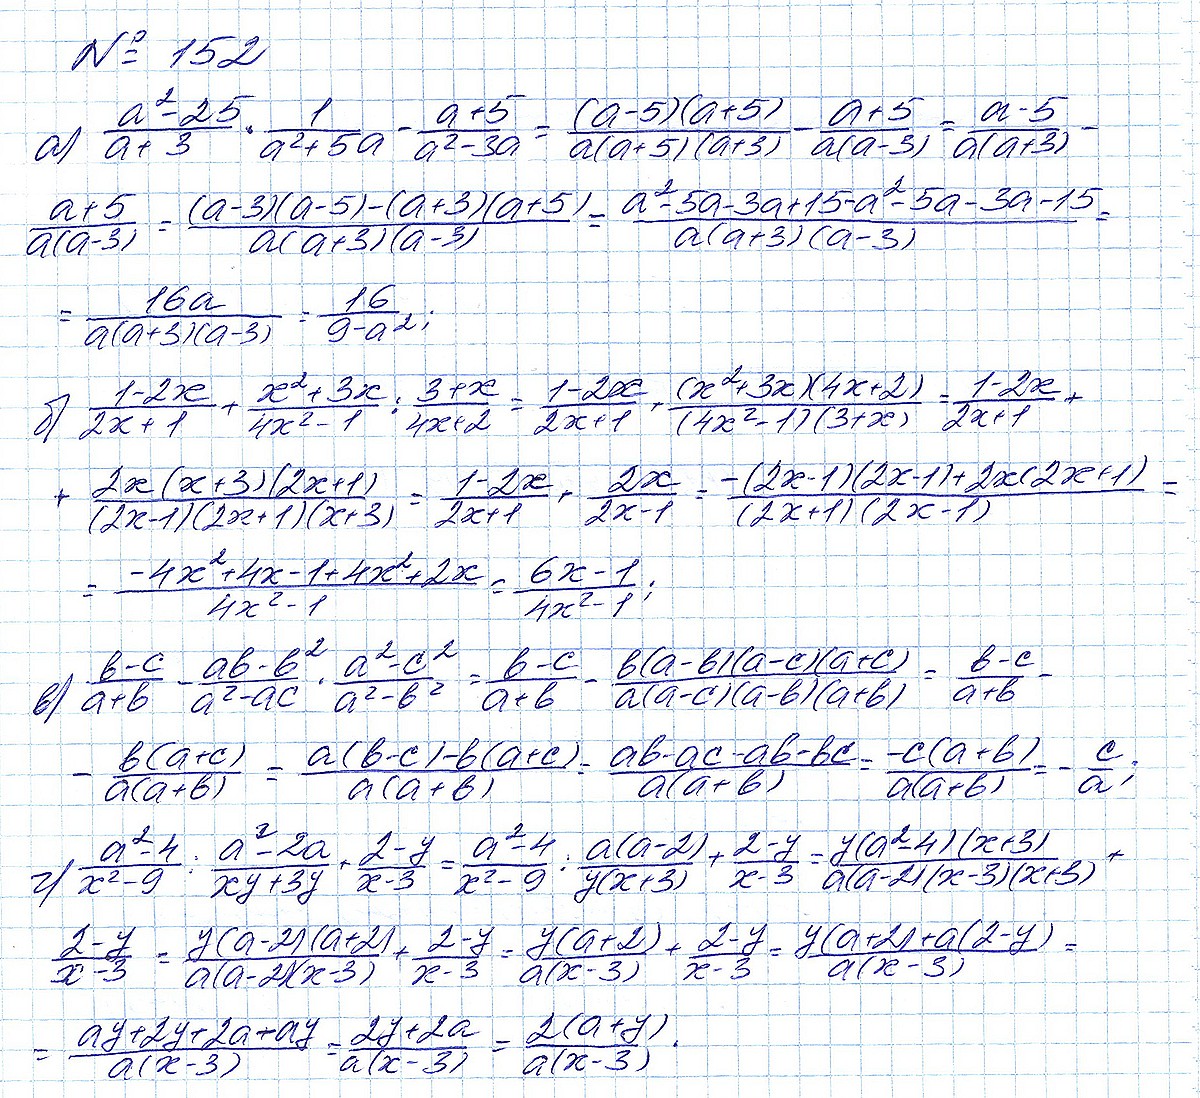 № 152
а) (a²-25)/(a+3) · 1/(a²+5a) - (a+5)/(a²-3a) = ((a-5)(a+5))/(a(a+5)(a+3)) - (a+5)/(a(a-3)) = (a-5)/(a(a+3)) -
(a+5)/(a(a-3)) = ((a-3)(a-5)-(a+3)(a+5))/(a(a+3)(a-3)) = (a²-5a-3a+15-a²-5a-3a-15)/(a(a+3)(a-3)) =
= 16a/(a(a+3)(a-3)) = 16/(9-a²);
б) (1-2x)/(2x+1) + (x²+3x)/(4x²-1) : (3+x)/(4x+2) = (1-2x)/(2x+1) + ((x²+3x)(4x+2))/((4x²-1)(3+x)) = (1-2x)/(2x+1) +
+ (2x(x+3)(2x+1))/((2x-1)(2x+1)(x+3)) = (1-2x)/(2x+1) + 2x/(2x-1) = (-(2x-1)(2x-1)+2x(2x+1))/((2x+1)(2x-1)) =
= (-4x²+4x-1+4x²+2x)/(4x²-1) = (6x-1)/(4x²-1);
в) (b-c)/(a+b) - (ab-b²)/(a²-ac) · (a²-c²)/(a²-b²) = (b-c)/(a+b) - (b(a-b)(a-c)(a+c))/(a(a-c)(a-b)(a+b)) = (b-c)/(a+b) -
- (b(a+c))/(a(a+b)) = (a(b-c)-b(a+c))/(a(a+b)) = (ab-ac-ab-bc)/(a(a+b)) = (-c(a+b))/(a(a+b)) = - c/a;
г) (a²-4)/(x²-9) : (a²-2a)/(xy+3y) + (2-y)/(x-3) = (a²-4)/(x²-9) : (a(a-2))/(y(x+3)) + (2-y)/(x-3) = (y(a²-4)(x+3))/(a(a-2)(x-3)(x+3)) +
(2-y)/(x-3) = (y(a-2)(a+2))/(a(a-2)(x-3)) + (2-y)/(x-3) = (y(a+2))/(a(x-3)) + (2-y)/(x-3) = (y(a+2)+a(2-y))/(a(x-3)) =
= (ay+2y+2a+ay)/(a(x-3)) = (2y+2a)/(a(x-3)) = (2(a+y))/(a(x-3)).